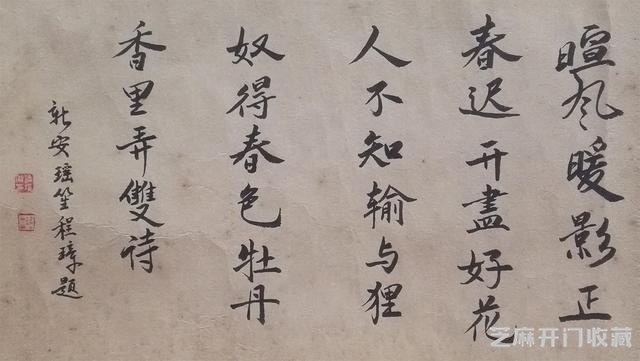 暄风暖影正
春迟开尽好花
人不知输与狸
奴得春色牡丹
香里弄双诗
新安瑶笙程璋题
芝麻开门收藏